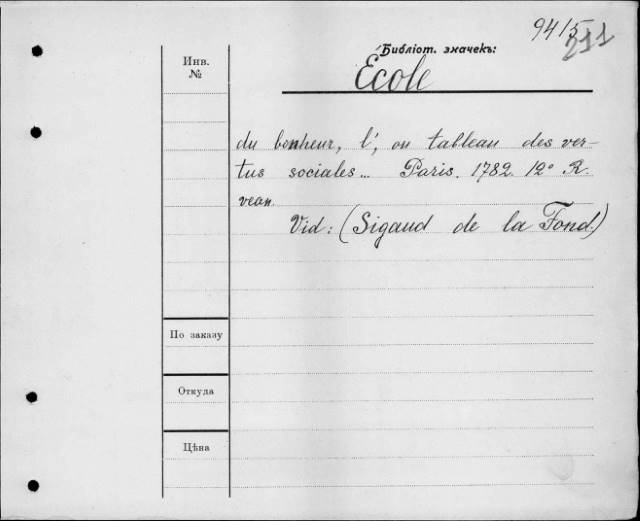 94/5
211
Библіот. значекъ:
École
Инв.
№
du bonheur, l', ou tableau des ver-
tus sociales... Paris. 1782. 12° R.
veau.
Vid: (Sigaud de la Fond.)
По заказу
Откуда
Цѣна